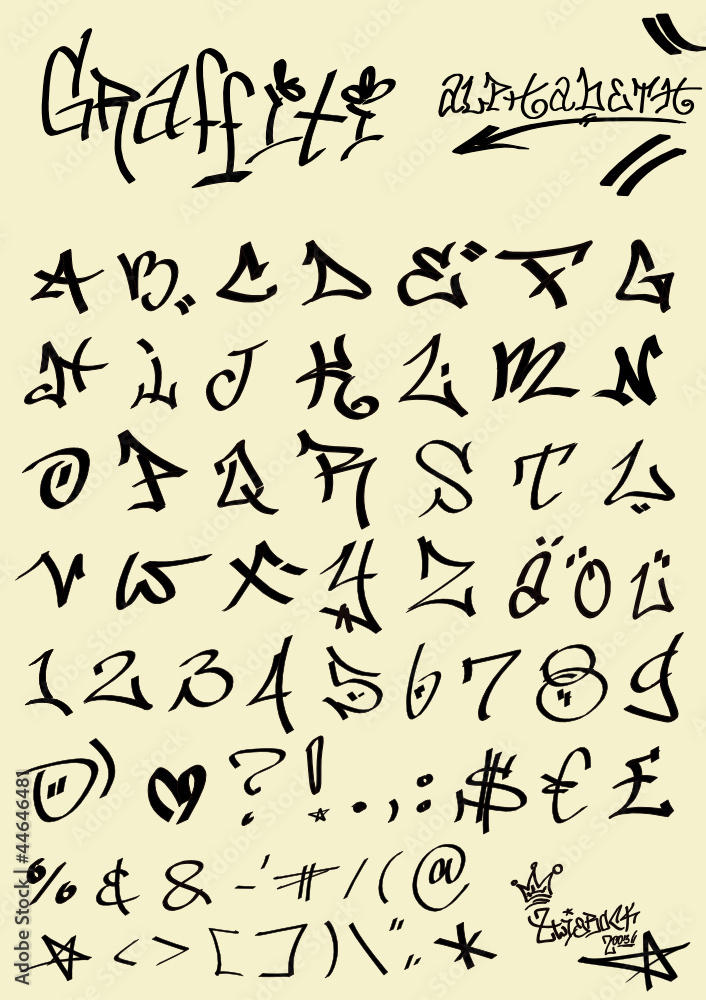 Graffiti alphabeth
A B. C D E F G
H i J K L M N
O P Q R S T U
V W X Y Z ä ö ü
1 2 3 4 5 6 7 8 9
0 ) ♥ ? ! . , : $ € £
% & & - ' # / ( @
☆ < > [ ] ) \ " *
ZWIEROCK
2005
Adobe Stock | #44646481